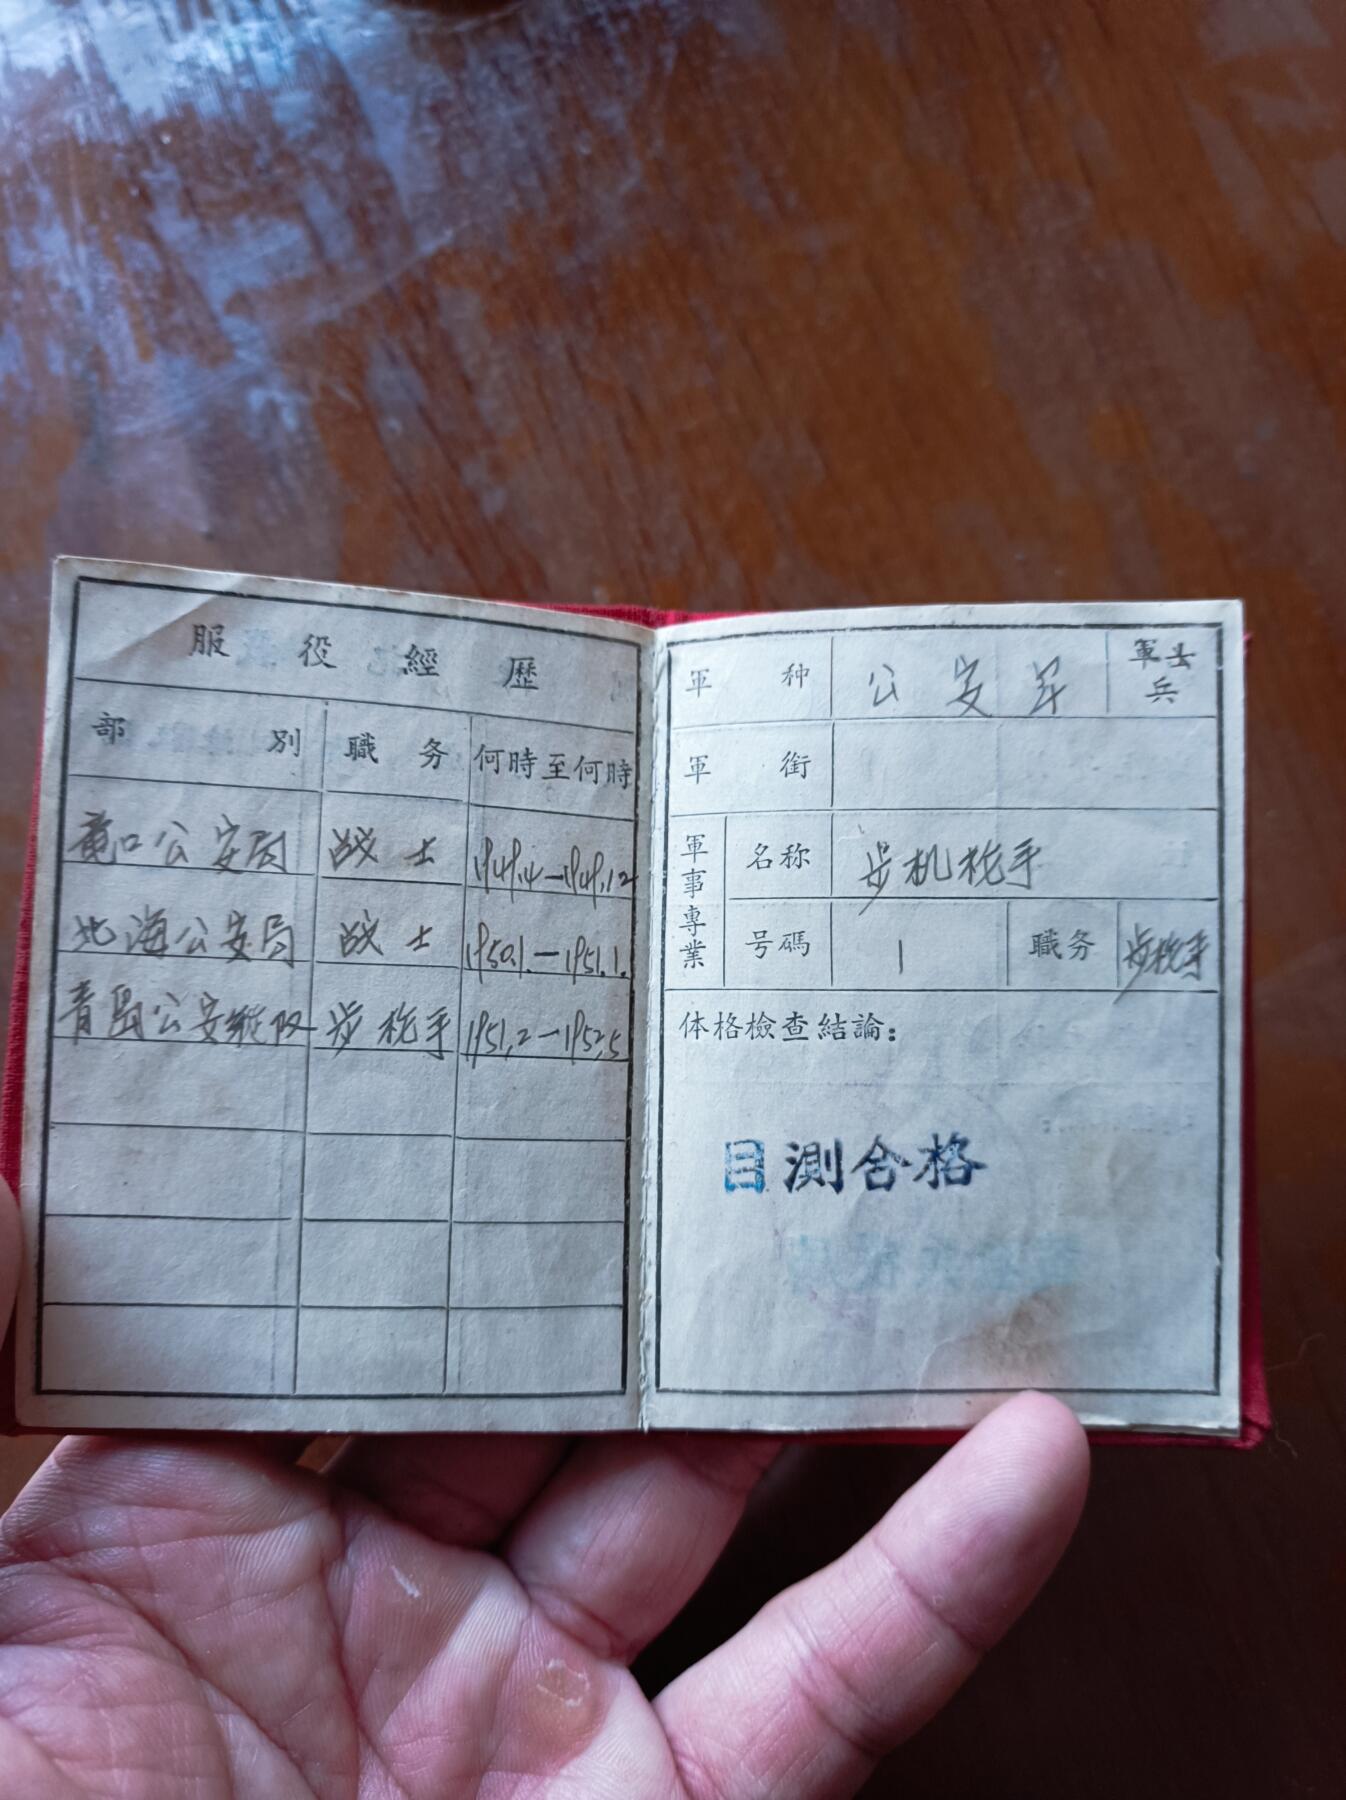 服役經歷
部別 職务 何時至何時
竜口公安局 战士 1949.4—1949.12
北海公安局 战士 1950.1.—1951.1.
青島公安纵队 步枪手 1951.2—1952.5
軍种 公安军 軍士兵
軍銜
軍事專業 名称 步机枪手
号碼 1 職务 步枪手
体格檢查結論:
目测合格